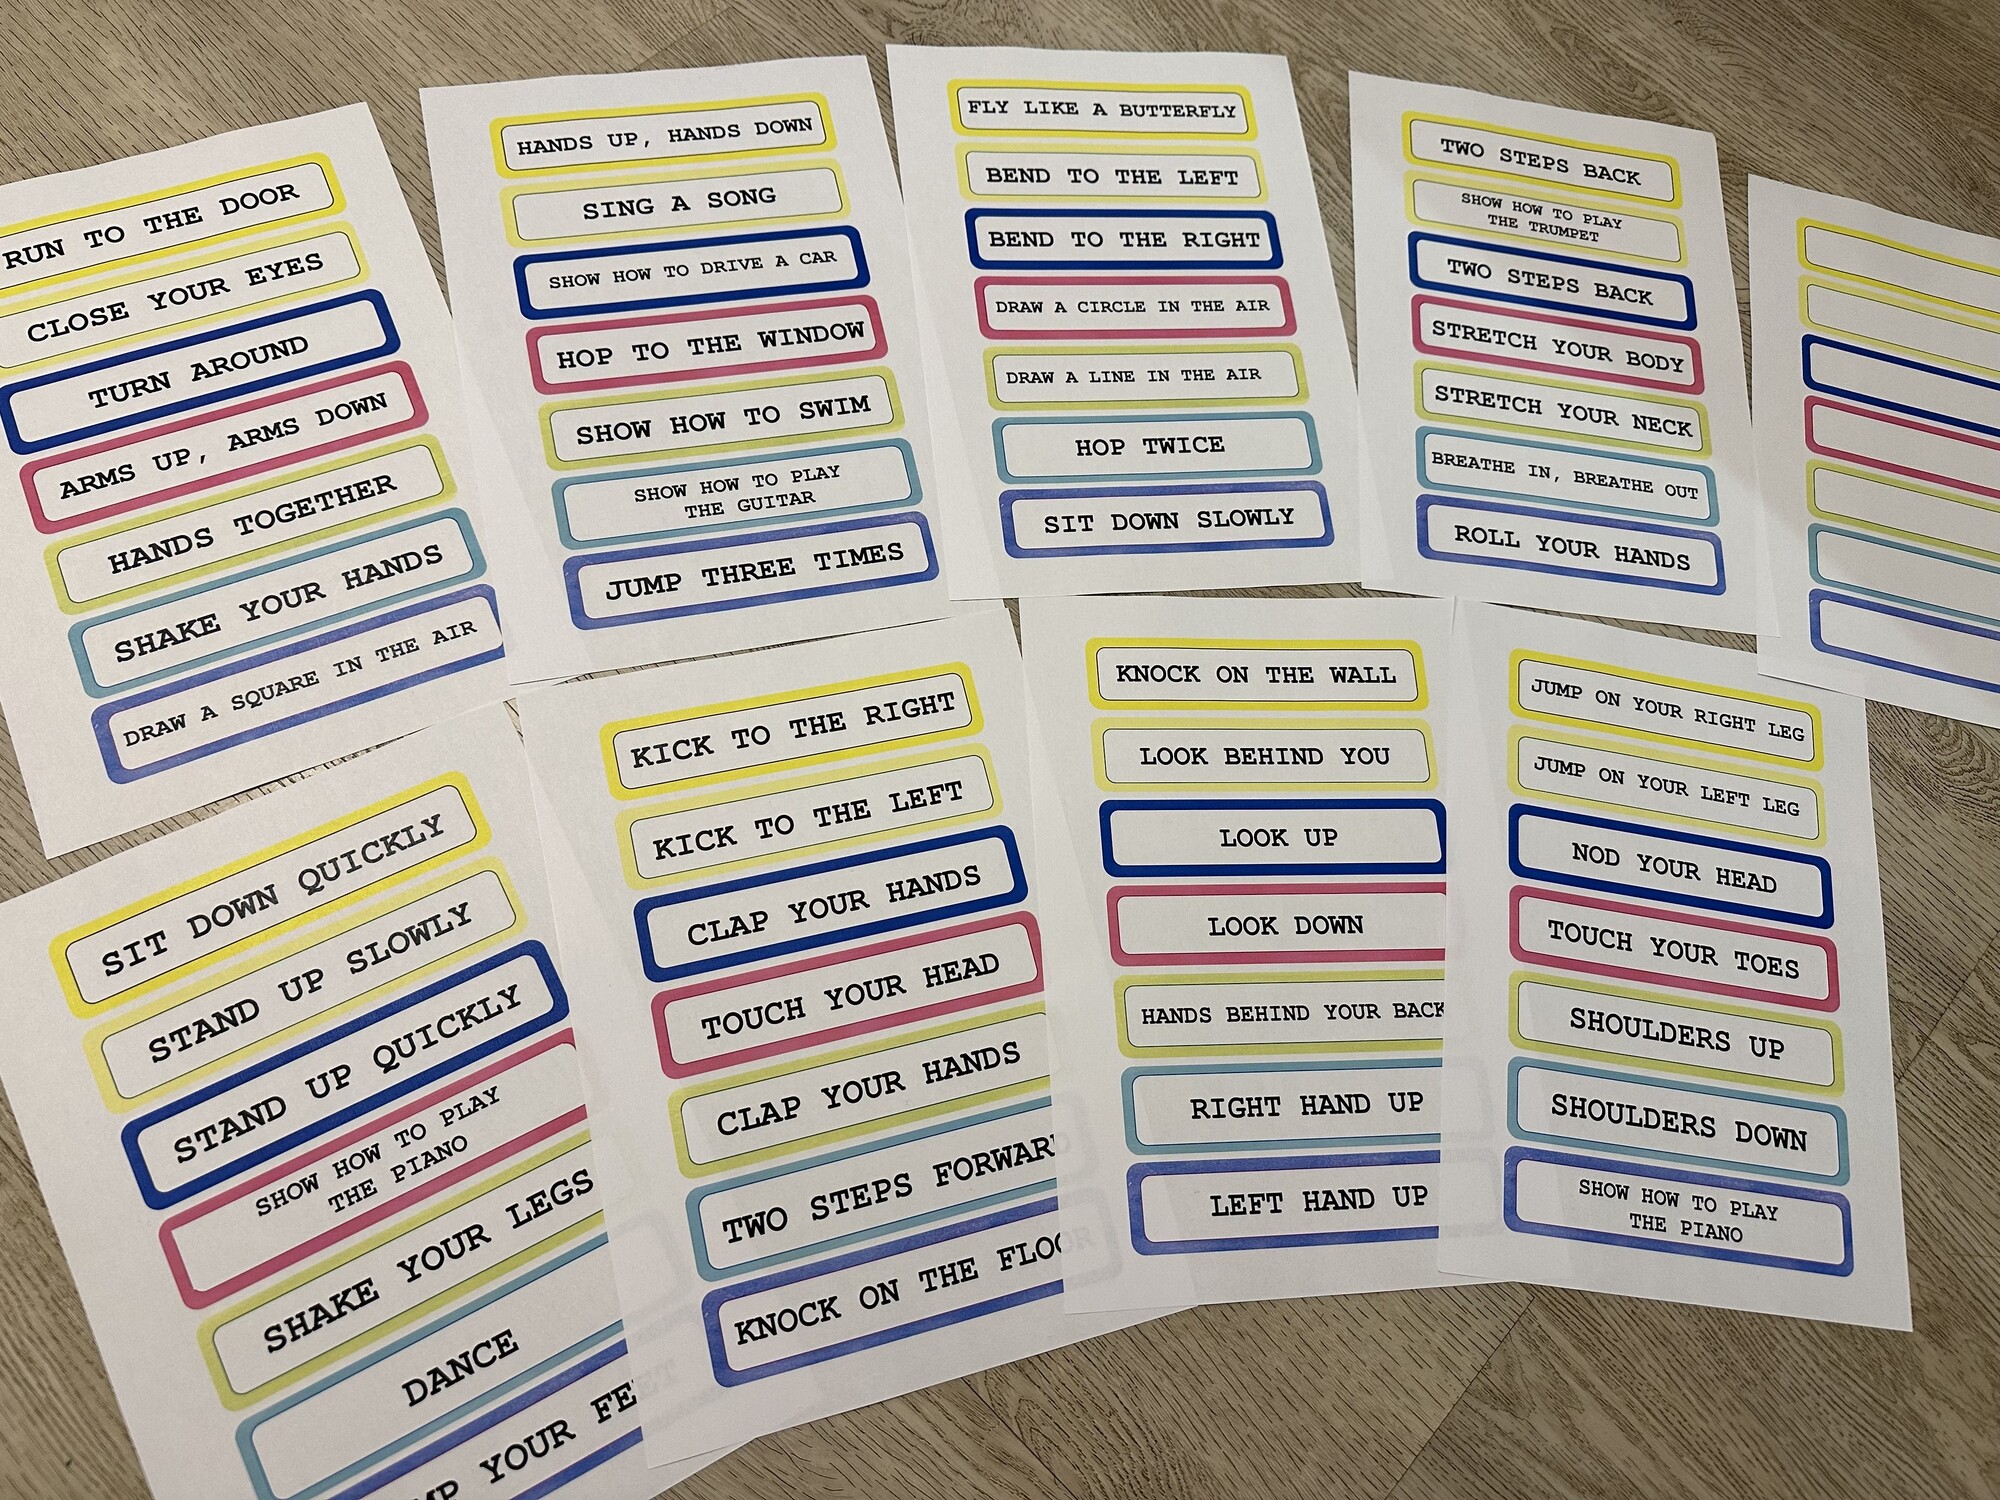 RUN TO THE DOOR
CLOSE YOUR EYES
TURN AROUND
ARMS UP, ARMS DOWN
HANDS TOGETHER
SHAKE YOUR HANDS
DRAW A SQUARE IN THE AIR
HANDS UP, HANDS DOWN
SING A SONG
SHOW HOW TO DRIVE A CAR
HOP TO THE WINDOW
SHOW HOW TO SWIM
SHOW HOW TO PLAY
THE GUITAR
JUMP THREE TIMES
FLY LIKE A BUTTERFLY
BEND TO THE LEFT
BEND TO THE RIGHT
DRAW A CIRCLE IN THE AIR
DRAW A LINE IN THE AIR
HOP TWICE
SIT DOWN SLOWLY
TWO STEPS BACK
SHOW HOW TO PLAY
THE TRUMPET
TWO STEPS BACK
STRETCH YOUR BODY
STRETCH YOUR NECK
BREATHE IN, BREATHE OUT
ROLL YOUR HANDS
SIT DOWN QUICKLY
STAND UP SLOWLY
STAND UP QUICKLY
SHOW HOW TO PLAY
THE PIANO
SHAKE YOUR LEGS
DANCE
YOUR
KICK TO THE RIGHT
KICK TO THE LEFT
CLAP YOUR HANDS
TOUCH YOUR HEAD
CLAP YOUR HANDS
TWO STEPS FORWAR
KNOCK ON THE FLOOR
KNOCK ON THE WALL
LOOK BEHIND YOU
LOOK UP
LOOK DOWN
HANDS BEHIND YOUR BACK
RIGHT HAND UP
LEFT HAND UP
JUMP ON YOUR RIGHT LEG
JUMP ON YOUR LEFT LEG
NOD YOUR HEAD
TOUCH YOUR TOES
SHOULDERS UP
SHOULDERS DOWN
SHOW HOW TO PLAY
THE PIANO